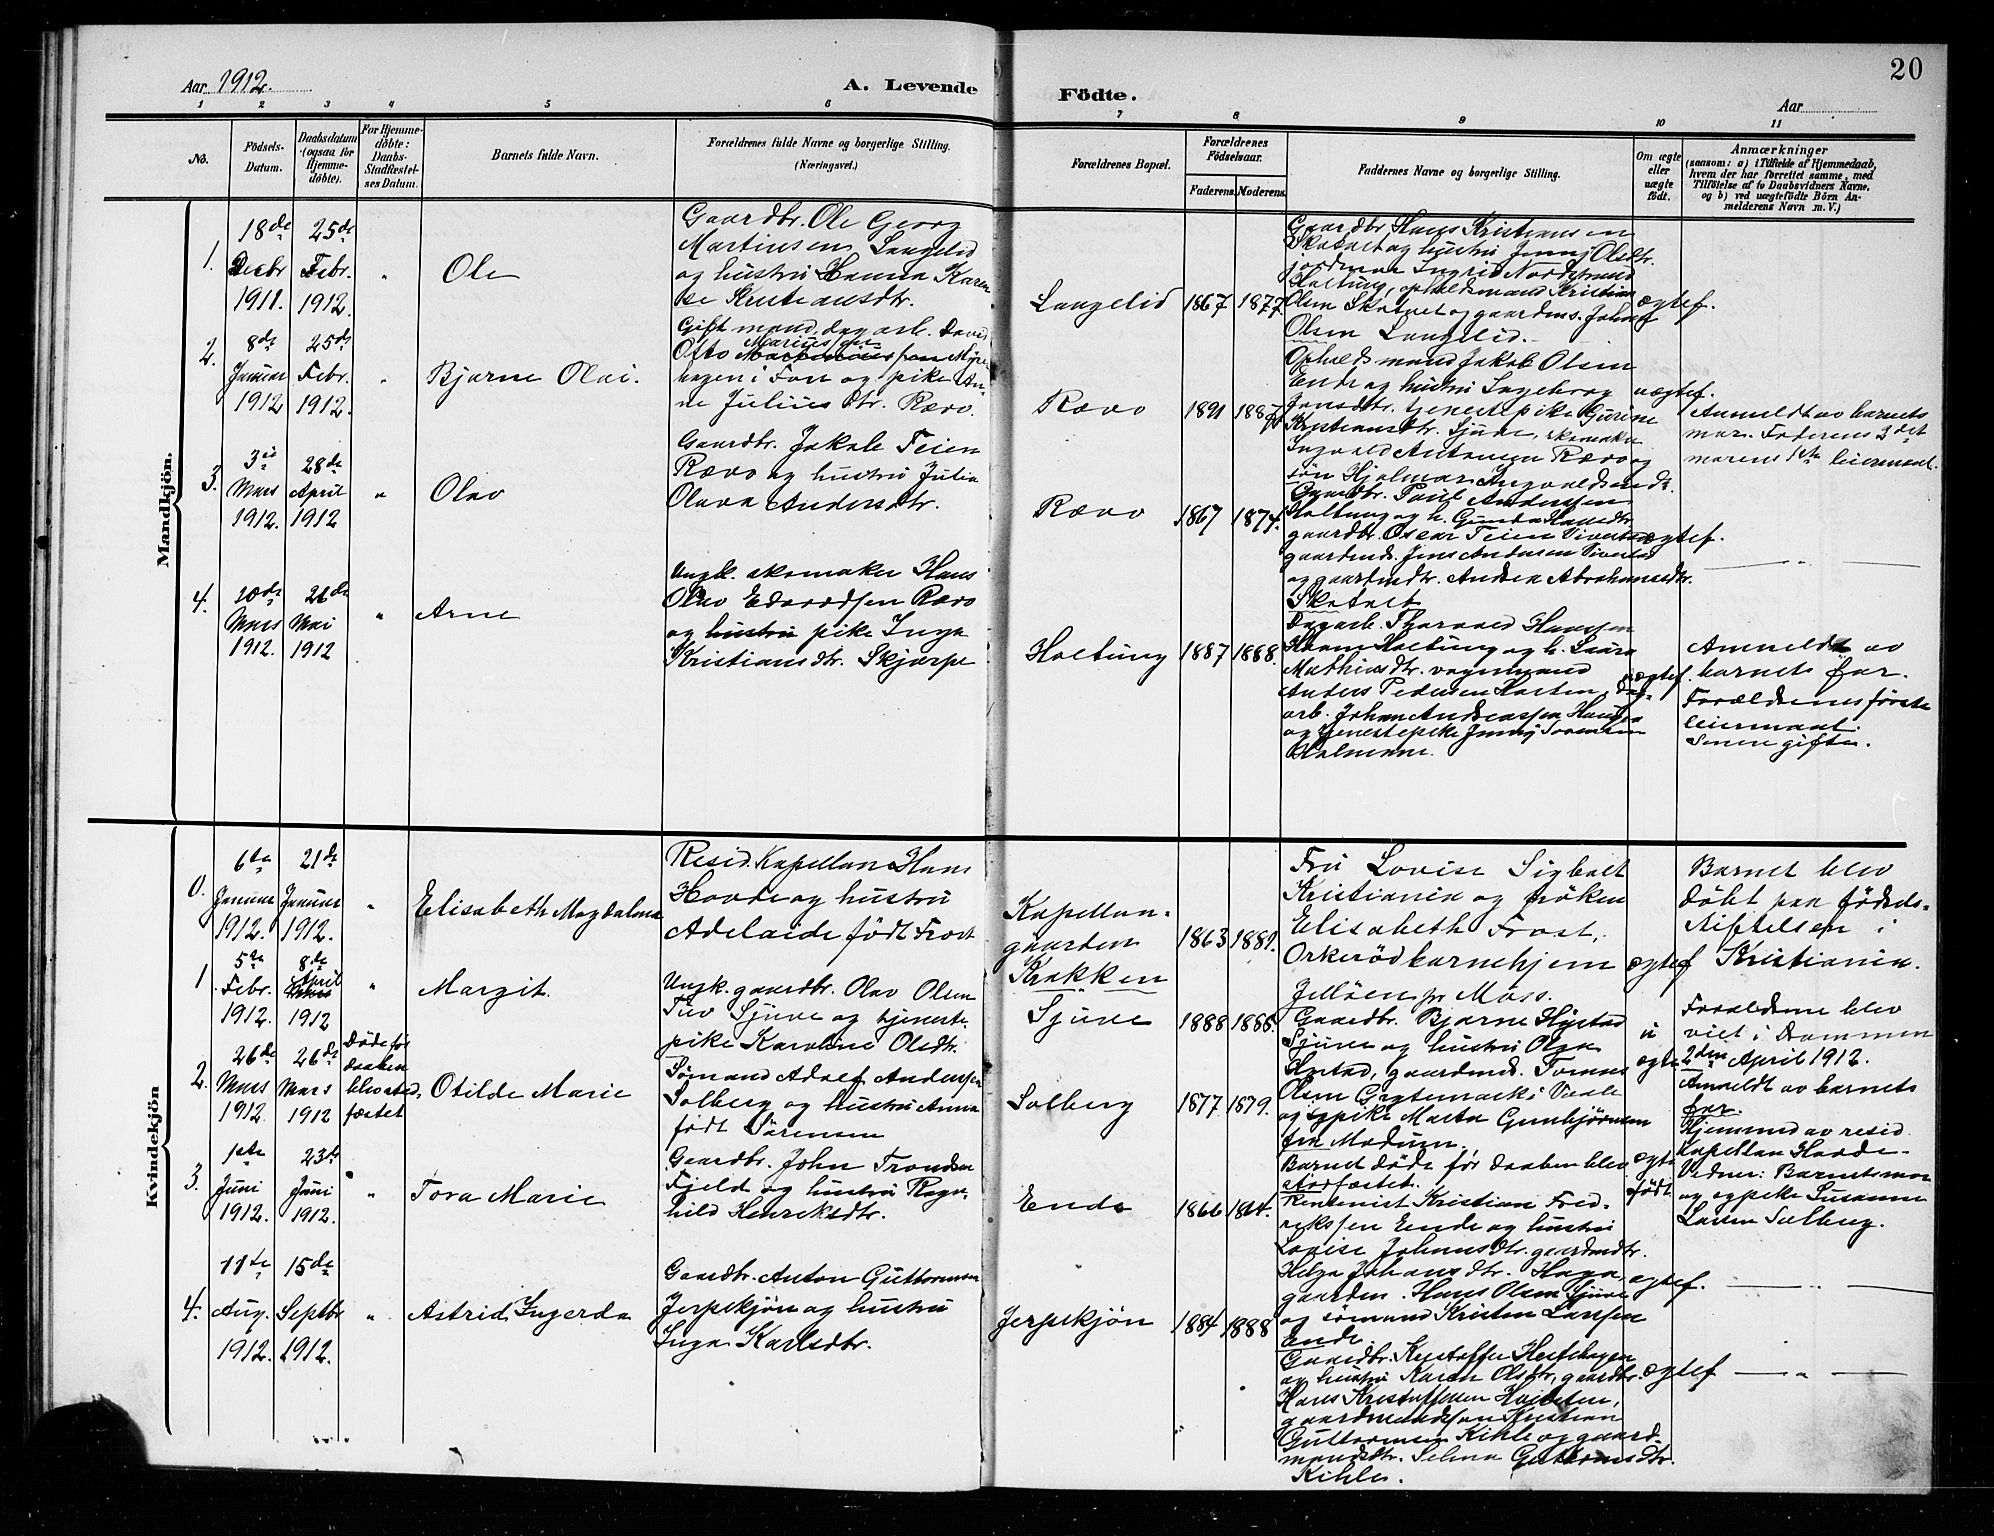 20
Aar 1912.
A. Levende
Födte.
Aar
1 2 3 4 5 6 7 8 9 10 11
No.
Födsels-
Datum.
Daabsdatum
(ogsaa for
Hjemme-
döbte).
For Hjemme-
döbte:
Daabs-
Stadfæstel-
ses Datum.
Barnets fulde Navn.
Forældrenes fulde Navne og borgerlige Stilling.
(Næringsvei.)
Forældrenes Bopæl.
Forældrenes
Födselsaar.
Faderens.
Moderens.
Faddernes Navne og borgerlige Stilling.
Om ægte
eller
uægte
født.
Anmærkninger
(saasom: a) i Tilfælde af Hjemmedaab,
hvem der har forrettet samme, med
Tilföielse af to Daabsvidners Navne,
og b) ved uægtefödte Börn An-
melderens Navn m. V.)
Mandkjön.
1.
18de
Decbr
1911.
25de
Febr.
1912.
"
Ole
Gaardbr. Ole Georg
Martinsen Langelid
og hustru Hanna Karen
Kristiansdtr.
Langelid
1867
1877
Gaardbr Hans Kristiansen
Skatvet og hustru Jenny Olsdtr.
jordmor Ingrid Nordstrand
Holtung, opholdsmand Kristian
Olsen Skatvet og gaardms. Johan
Olsen Langelid.
ægtef.
2.
8de
Januar
1912
25de
Febr.
1912.
"
Bjarne Olai.
Gift mand, dagarb. David
Otto Mariussen Myre-
hagen i Fon og pike An-
ne Juliusdtr. Rævo.
Rævo
1891
1887
Opholdsmand Jakob Olsen
Ende og hustru Ingeborg
Jonsdtr. tjenestepike Gurine
Kristiansdtr. Sjuve, skomaker
Ingvald Antonsen Rævo og
søn Hjalmar Ingvaldsen ds.
uægtef.
Anmeldt av barnets
mor. Faderens 2det
morens 1ste leiermaal.
3.
3die
Mars
1912.
28de
April
1912
"
Olav
Gaardbr. Jakob Teien
Rævo og hustru Julia
Olava Andersdtr.
Rævo
1867
1874.
Gaardbr. Paul Anderssen
Holtung og h. Gunda Hansdtr.
gaardbr. Oscar Teien
gaardmds. Jens Andersen
og gaardmdtr. Andrea Abrahamsdtr.
Skatvet
ægtef.
4.
10de
Mars
1912.
26de
Mai
1912
"
Arne
Ungk. skomaker Hans
Olav Edvardsen Rævo
og hustru pike Inga
Kristiansdtr. Skjærpe
Holtung
1887
1888.
Dagarb. Thorvald Hanssen
Holtung og h. Laura
Mathiasdtr. vognmand
Anders Pedersen Horten, dag-
arb. Johan Andreassen Haugen
og tjenestepike Jenny Sørensen
Holmene.
uægtef.
Anmeldt av
barnets far.
Forældrenes første
leiermaal.
Senere gifte.
Kvindekjön
0.
6te
Januar
1912.
21de
Januar
1912.
"
Elisabeth Magdalena
Resid. Kapellan Hans
Hovde og hustru
Adelaide født Frost
Kapellan-
gaarden
Krakken
1863
1881.
Fru Lovise Sigholt
Kristiania og frøken
Elisabeth Frost,
Orkerød barnehjem
Jelløen pr Moss.
ægtef
Barnet blev
døbt paa fødsels-
stiftelsen i
Kristiania.
1
5te
Febr.
1912.
8de
April
1912
"
Margit.
Ungk. gaardbr. Olav Olsen
Tuv Sjuve og tjeneste-
pike Karoline Olsdtr.
Sjuve
1888
1888.
Gaardbr. Bjarne Hystad
Sjuve og hustru Olga
Hystad, gaardmd. Tomas
Olsen Gogtemark i Vaale
og pike Marta Gunbjørnsen
fra Modum.
u
ægte
Forældrene blev
viet i Drammen
2den April 1912.
Anmeldt av barnets
far.
2.
26de
Mars
1912.
26de
Mars
1912
Døde før
daaben
blev stad-
fæstet
Otilde Marie
Sømand Adolf Andersen
Solberg og hustru Anna
født Sørensen
Solberg
1877.
1879.
Barnet døde før daaben blev
stadfæstet.
ægte
født
Hjemmed. av resid.
Kapellan Hovde.
Vidner: Barnets mor
og pike Susanne
Larsen Solberg.
3.
1ste
Juni
1912.
23de
Juni
1912.
"
Tora Marie
Gaardbr. John Trondsen
Fjeld og hustru Ragn-
hild Henriksdtr.
Ende
1866
1864.
Rentenist Kristian Fred-
riksen Ende og hustru
Lovise Johannsdtr. gaardmdtr.
Helga Johansdtr. Haga,
gaardm. Hans Olsen Sjuve
og sømand Kristen Larssen
Ende.
ægtef.
4.
11te
Aug.
1912.
15de
Septbr
1912.
"
Astrid Ingerda
Gaardbr. Anton Guttormsen
Jerpekjøn og hustru
Inga Karlsdtr.
Jerpekjøn
1884
1888
Gaardbr. Kristoffer Hestehagen
og hustru Karen Olsdtr, gaardbr.
Hans Kristoffersen Hvitsten,
gaardmandssøn Kristian
Guttormsen Kihle og gaard-
mandsdtr. Selma Guttormsdtr.
Kihle.
ægtef